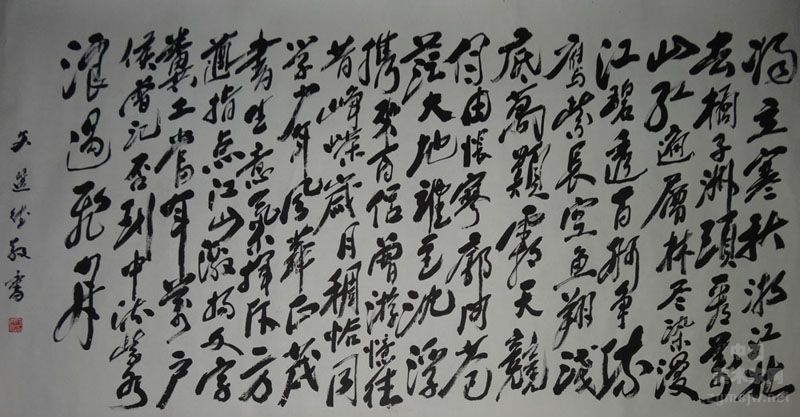 獨立寒秋湘江北
去橘子洲頭看萬
山紅遍層林尽染漫
江碧透百舸争流
鷹擊長空魚翔淺
底萬類霜天競
自由悵寥廓問蒼
茫大地誰主沉浮
携來百侣曾游憶往
昔崢嶸歲月稠恰同
學少年風華正茂
書生意氣揮斥方
遒指点江山激揚文字
糞土當年萬户
侯曾記否到中流擊水
浪遏飛舟
敬書